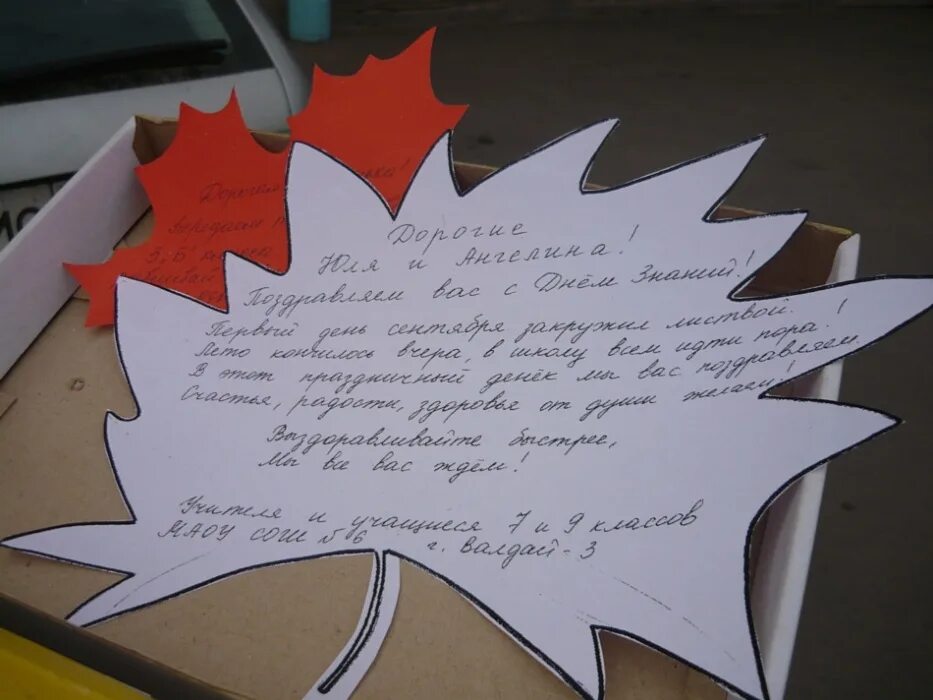 Дорогие
Юля и Ангелина!
Поздравляем вас с Днём Знаний!
Первый день сентября закружил листвой.
Лето кончилось вчера, в школу всем идти пора!
В этот праздничный денёк мы вас поздравляем.
Счастья, радости, здоровья от души желаем!
Выздоравливайте быстрее,
Мы все вас ждём!
Учителя и учащиеся 7 и 9 классов
МАОУ СОШ №6 г. Валдай-3